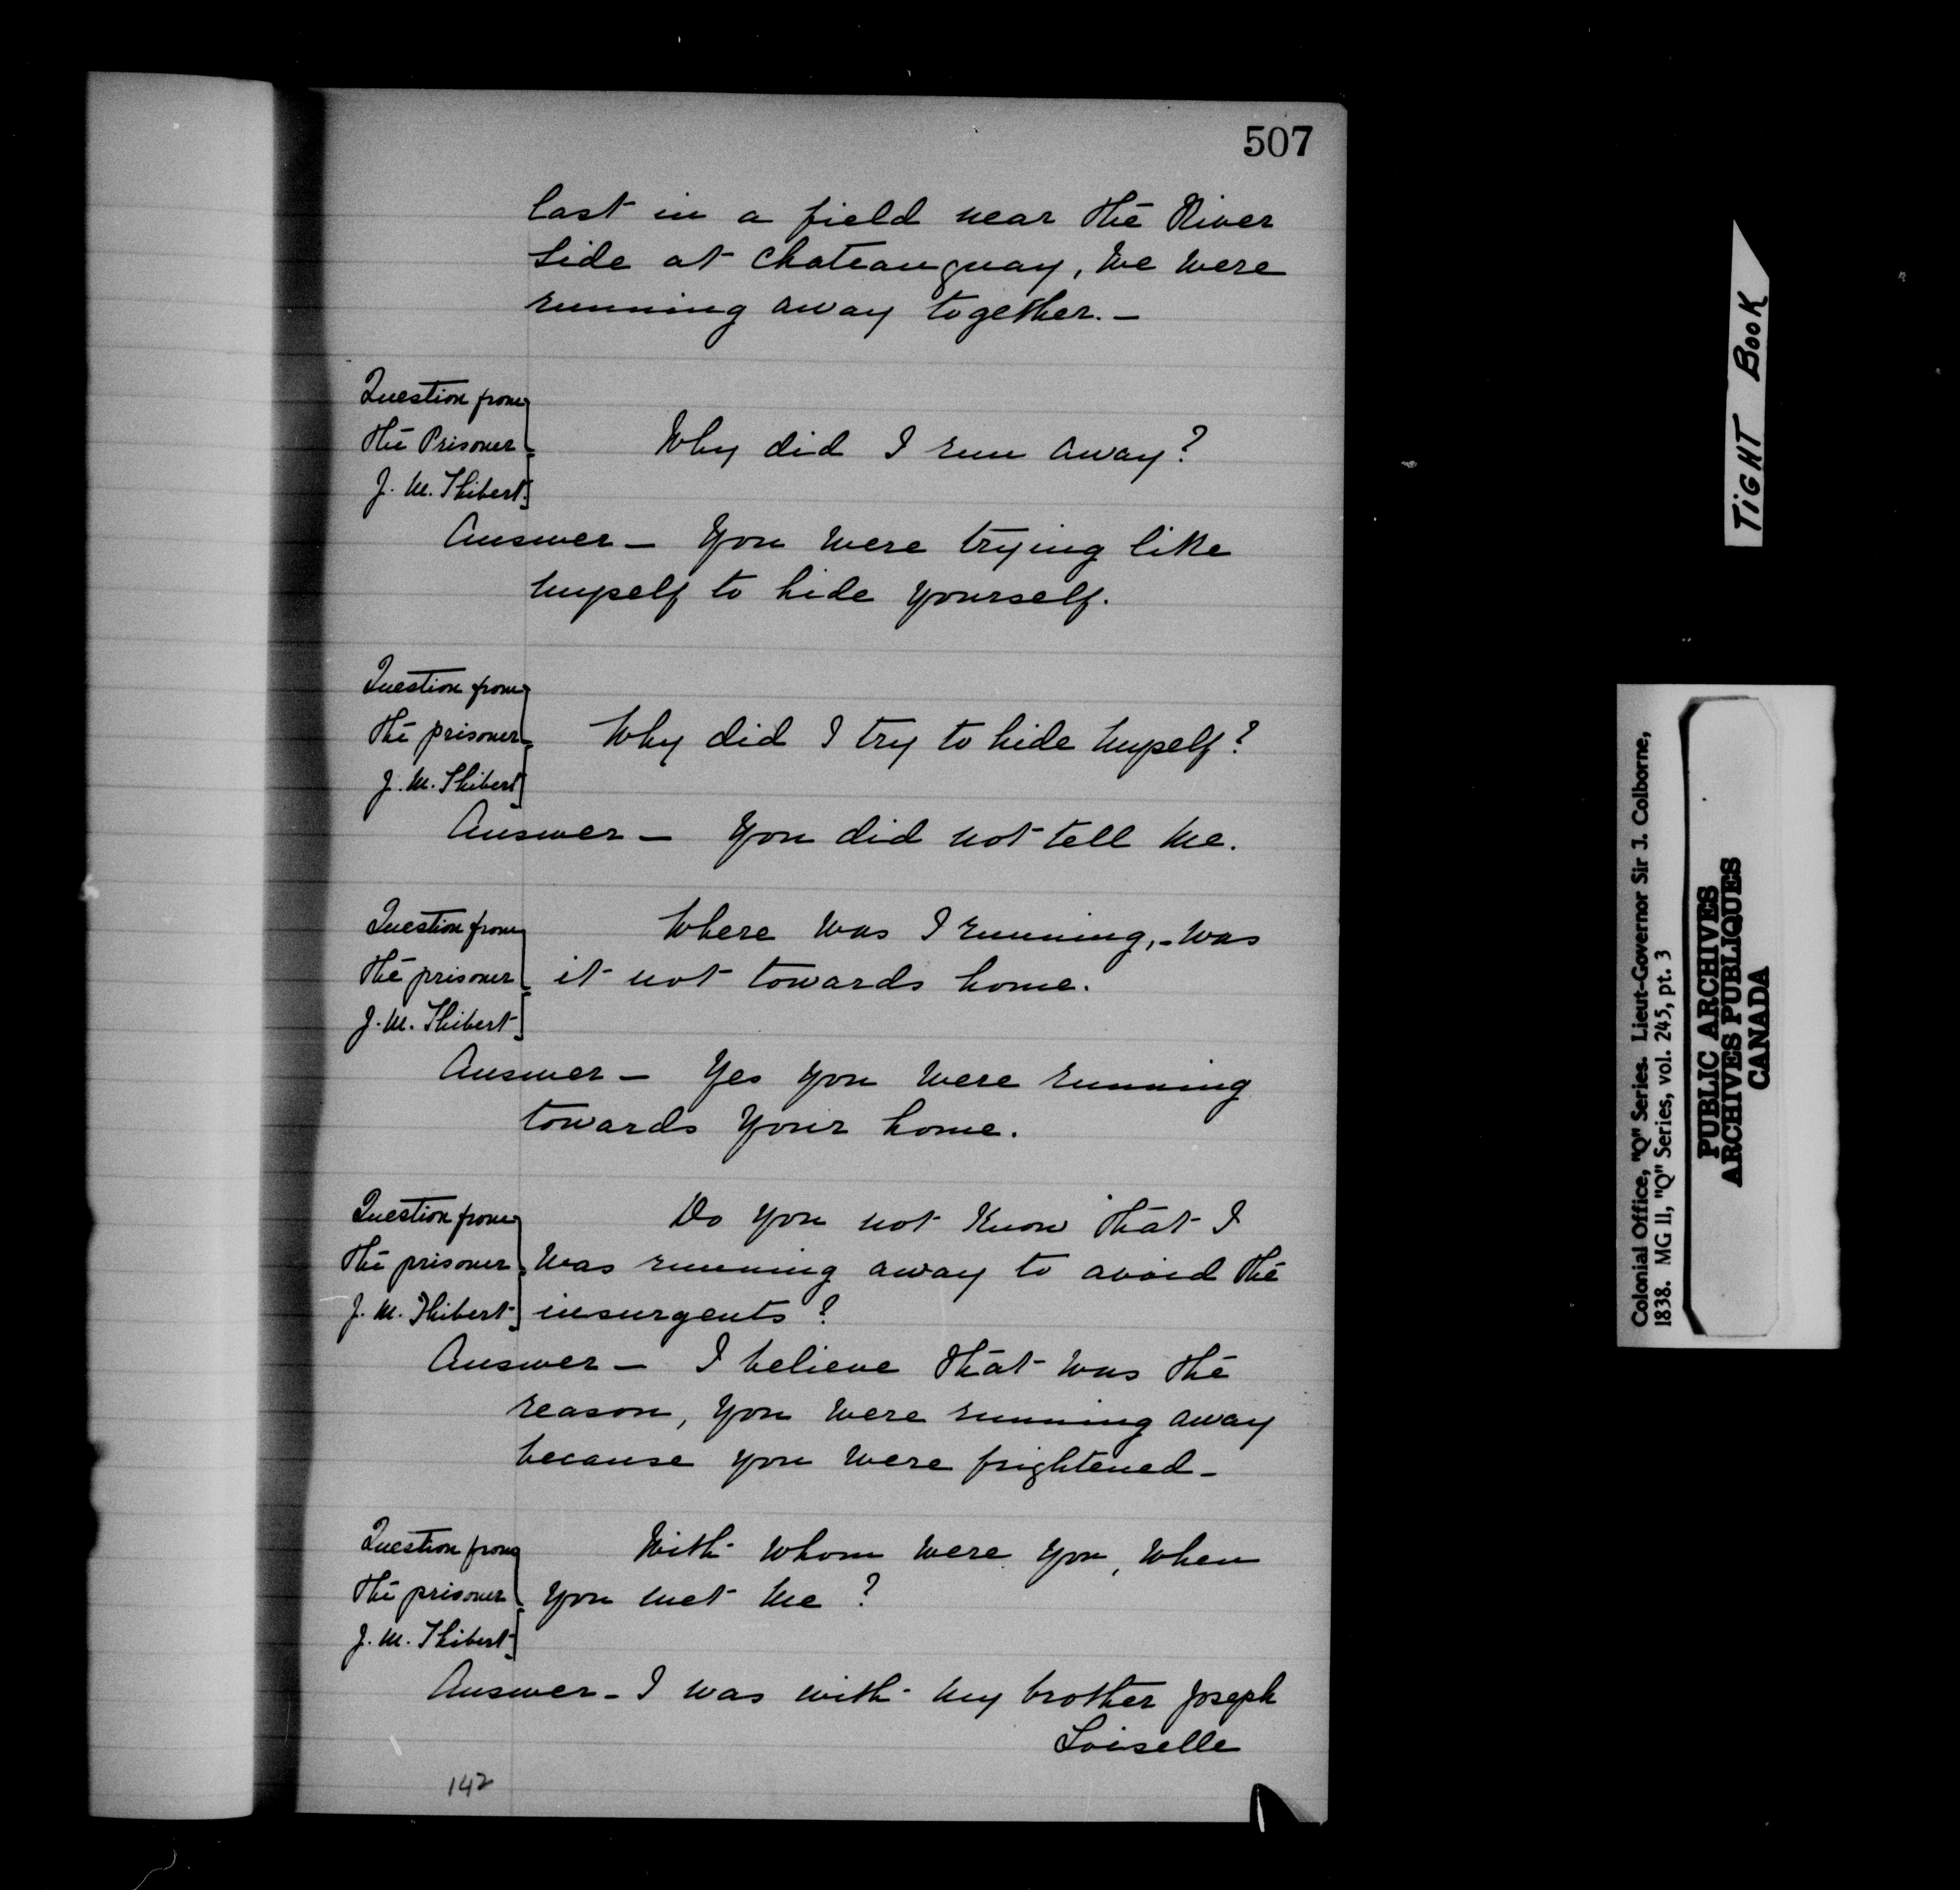 507
last in a field near the River
side at Chateauguay, we were
running away together. —
Question from
the Prisoner
J. M. Thibert.
Why did I run away?
Answer — You were trying like
myself to hide yourself.
Question from
the prisoner
J. M. Thibert
Why did I try to hide myself?
Answer — You did not tell me.
Question from
the prisoner
J. M. Thibert
Where was I running, - was
it not towards home.
Answer — Yes you were running
towards your home.
Question from
the prisoner
J. M. Thibert
Do you not know that I
was running away to avoid the
insurgents?
Answer — I believe that was the
reason, you were running away
because you were frightened —
Question from
the prisoner
J. M. Thibert
With whom were you, when
you met me?
Answer — I was with my brother Joseph
Loiselle
142
TIGHT BOOK
Colonial Office, "Q" Series. Lieut-Governor Sir J. Colborne,
1838. MG 11, "Q" Series, vol. 245, pt. 3
PUBLIC ARCHIVES
ARCHIVES PUBLIQUES
CANADA